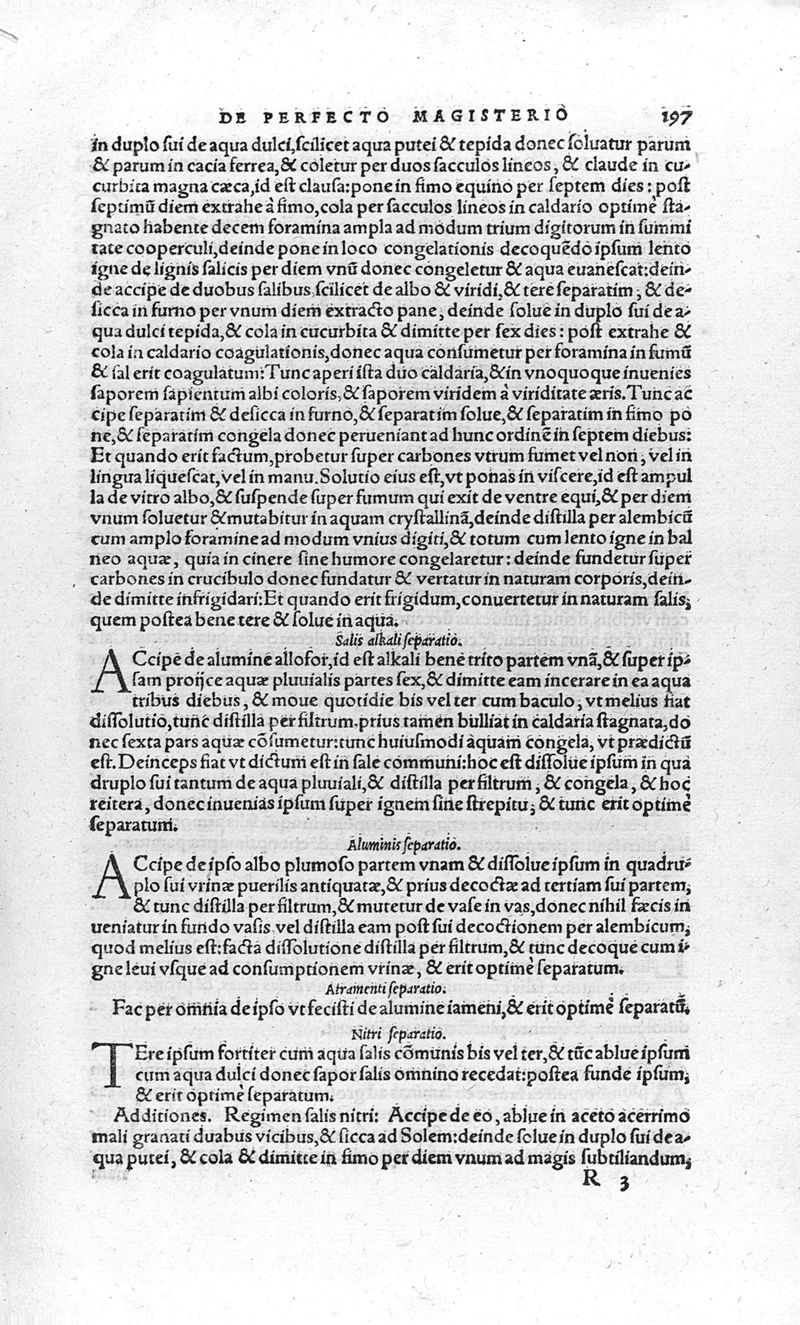 DE PERFECTO MAGISTERIO 197
in duplo ſui de aqua dulci,ſcilicet aqua putei & tepida donec ſoluatur parum
& parum in cacia ferrea,& coletur per duos ſacculos lineos, & claude in cu-
curbita magna cæca,id eſt clauſa:pone in fimo equino per ſeptem dies: poſt
ſeptimũ diem extrahe à fimo,cola per ſacculos lineos in caldario optimè ſta-
gnato habente decem foramina ampla ad modum trium digitorum in ſummi
tate cooperculi,deinde pone in loco congelationis decoquẽdo ipſum lento
igne de lignis ſalicis per diem vnũ donec congeletur & aqua euaneſcat:dein-
de accipe de duobus ſalibus,ſcilicet de albo & viridi,& tere ſeparatim, & de-
ſicca in furno per vnum diem extracto pane, deinde ſolue in duplo ſui de a-
qua dulci tepida,& cola in cucurbita & dimitte per ſex dies: poſt extrahe &
cola in caldario coagulationis,donec aqua conſumetur per foramina in fumũ
& ſal erit coagulatum:Tunc aperi iſta duo caldaria,& in vnoquoque inuenies
ſaporem ſapientum albi coloris,& ſaporem viridem à viriditate æris.Tunc ac
cipe ſeparatim & deſicca in furno,& ſeparatim ſolue,& ſeparatim in fimo po
ne,& ſeparatim congela donec perueniant ad hunc ordinẽ in ſeptem diebus:
Et quando erit factum,probetur ſuper carbones vtrum fumet vel non, vel in
lingua liqueſcat,vel in manu.Solutio eius eſt,vt ponas in viſcere,id eſt ampul
la de vitro albo,& ſuſpende ſuper fumum qui exit de ventre equi,& per diem
vnum ſoluetur & mutabitur in aquam cryſtallinã,deinde diſtilla per alembicũ
cum amplo foramine ad modum vnius digiti,& totum cum lento igne in bal
neo aquæ, quia in cinere ſine humore congelaretur: deinde fundetur ſuper
carbones in crucibulo donec fundatur & vertatur in naturam corporis,dein-
de dimitte infrigidari:Et quando erit frigidum,conuertetur in naturam ſalis;
quem poſtea bene tere & ſolue in aqua.
Salis alkali ſeparatio.
ACcipe de alumine allofor,id eſt alkali bene trito partem vnã,& ſuper ip-
ſam proijce aquæ pluuialis partes ſex,& dimitte eam incerare in ea aqua
tribus diebus, & moue quotidie bis vel ter cum baculo, vt melius fiat
diſſolutio,tunc diſtilla per filtrum.prius tamen bulliat in caldaria ſtagnata,do
nec ſexta pars aquæ cõſumetur:tunc huiuſmodi aquam congela, vt prædictũ
eſt.Deinceps fiat vt dictum eſt in ſale communi:hoc eſt diſſolue ipſum in qua
druplo ſui tantum de aqua pluuiali,& diſtilla per filtrum, & congela, & hoc
reitera, donec inuenias ipſum ſuper ignem ſine ſtrepitu; & tunc erit optimè
ſeparatum.
Aluminis ſeparatio.
ACcipe de ipſo albo plumoſo partem vnam & diſſolue ipſum in quadru-
plo ſui vrinæ puerilis antiquatæ,& prius decoctæ ad tertiam ſui partem;
& tunc diſtilla per filtrum,& mutetur de vaſe in vas,donec nihil fæcis in
ueniatur in fundo vaſis vel diſtilla eam poſt ſui decoctionem per alembicum;
quod melius eſt:facta diſſolutione diſtilla per filtrum,& tunc decoque cum i-
gne leui vſque ad conſumptionem vrinæ, & erit optimè ſeparatum.
Atramenti ſeparatio.
Fac per omnia de ipſo vt feciſti de alumine iameni,& erit optimè ſeparatũ.
Nitri ſeparatio.
TEre ipſum fortiter cum aqua ſalis cõmunis bis vel ter,& tũc ablue ipſum
cum aqua dulci donec ſapor ſalis omnino recedat:poſtea funde ipſum;
& erit optimè ſeparatum.
Additiones. Regimen ſalis nitri: Accipe de eo, ablue in aceto acerrimo
mali granati duabus vicibus,& ſicca ad Solem:deinde ſolue in duplo ſui de a-
qua putei, & cola & dimitte in fimo per diem vnum ad magis ſubtiliandum;
R 3